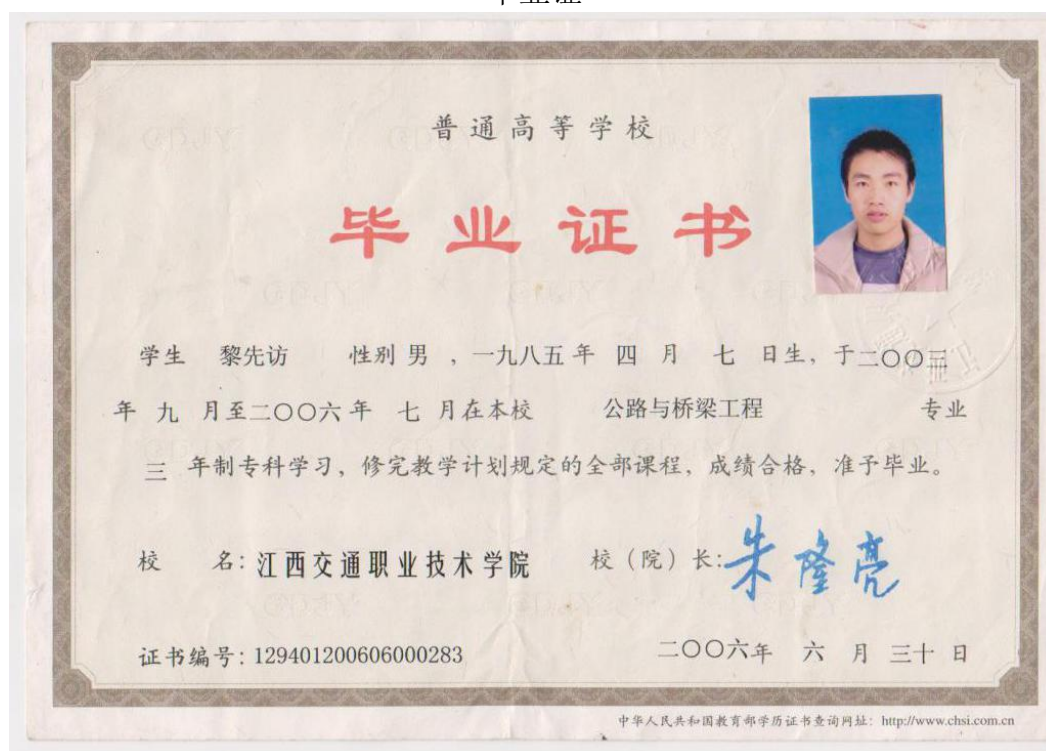 毕业证
普通高等学校
毕业证书
学生 黎先访 性别 男 ，一九八五 年 四 月 七 日生，于二〇〇三
年 九 月至二〇〇六 年 七 月在本校 公路与桥梁工程 专业
三 年制专科学习，修完教学计划规定的全部课程，成绩合格，准予毕业。
校 名：江西交通职业技术学院 校（院）长：朱隆亮
证书编号：129401200606000283 二〇〇六年 六 月 三十 日
中华人民共和国教育部学历证书查询网址：http://www.chsi.com.cn